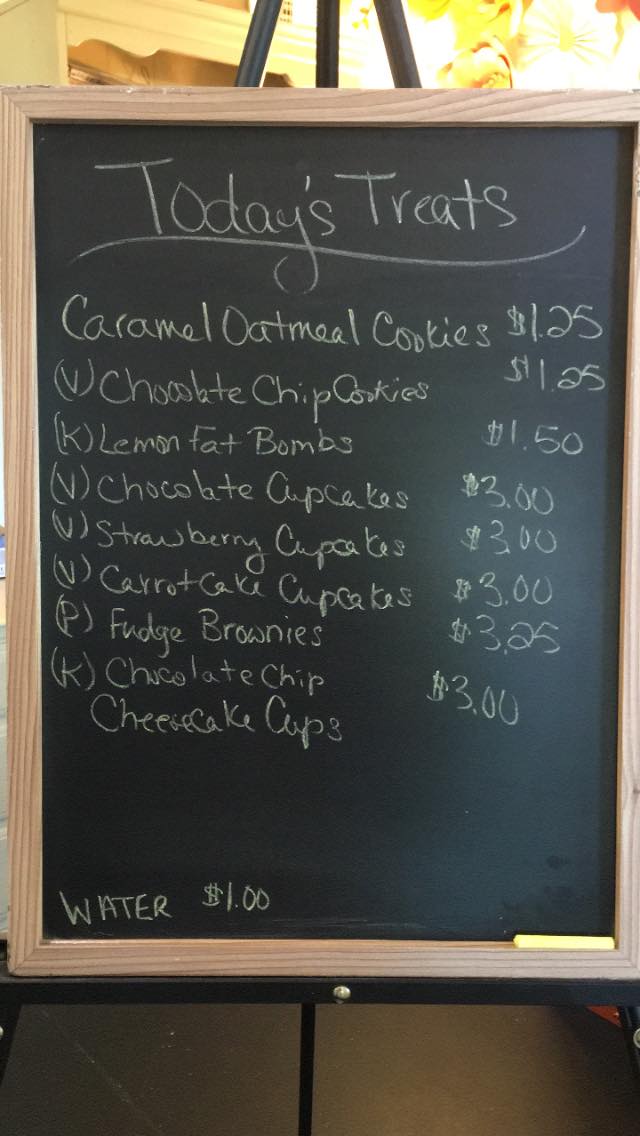 Today's Treats
Caramel Oatmeal Cookies $1.25
(V) Chocolate Chip Cookies $1.25
(K) Lemon Fat Bombs $1.50
(V) Chocolate Cupcakes $3.00
(V) Strawberry Cupcakes $3.00
(V) Carrot Cake Cupcakes $3.00
(P) Fudge Brownies $3.25
(K) Chocolate Chip
Cheesecake Cups $3.00
WATER $1.00